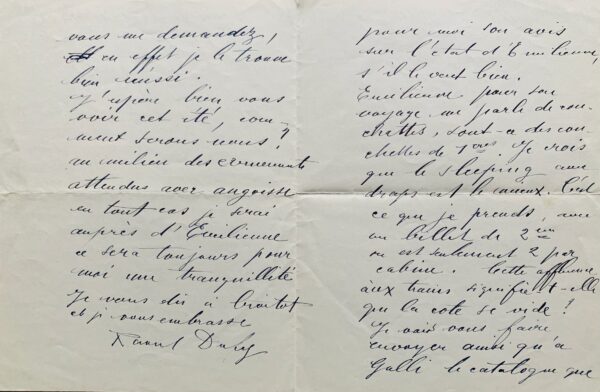 vous me demandez,
en effet je le trouve
bien réussi.
J'espère bien vous
voir cet été, com-
ment serons nous?
au milieu des évenements
attendus avec angoisse
en tout cas je serai
auprès d'Emilienne
ce sera toujours pour
moi une tranquillité
Je vous dis à bientot
et je vous embrasse
Raoul Dufy
pour moi son avis
sur l'état d'Emilienne,
s'il le veut bien.
Emilienne pour son
voyage me parle de cou-
chettes, sont-ce des cou-
chettes de 1eres Je crois
que le sleeping avec
draps est le mieux. C'est
ce que je prends, avec
un billet de 2eme
on est seulement 2 par
cabine. Cette affluence
aux trains signifie-t-elle
que la cote se vide?
Je vais vous faire
envoyer ainsi qu'à
Galli le catalogue que